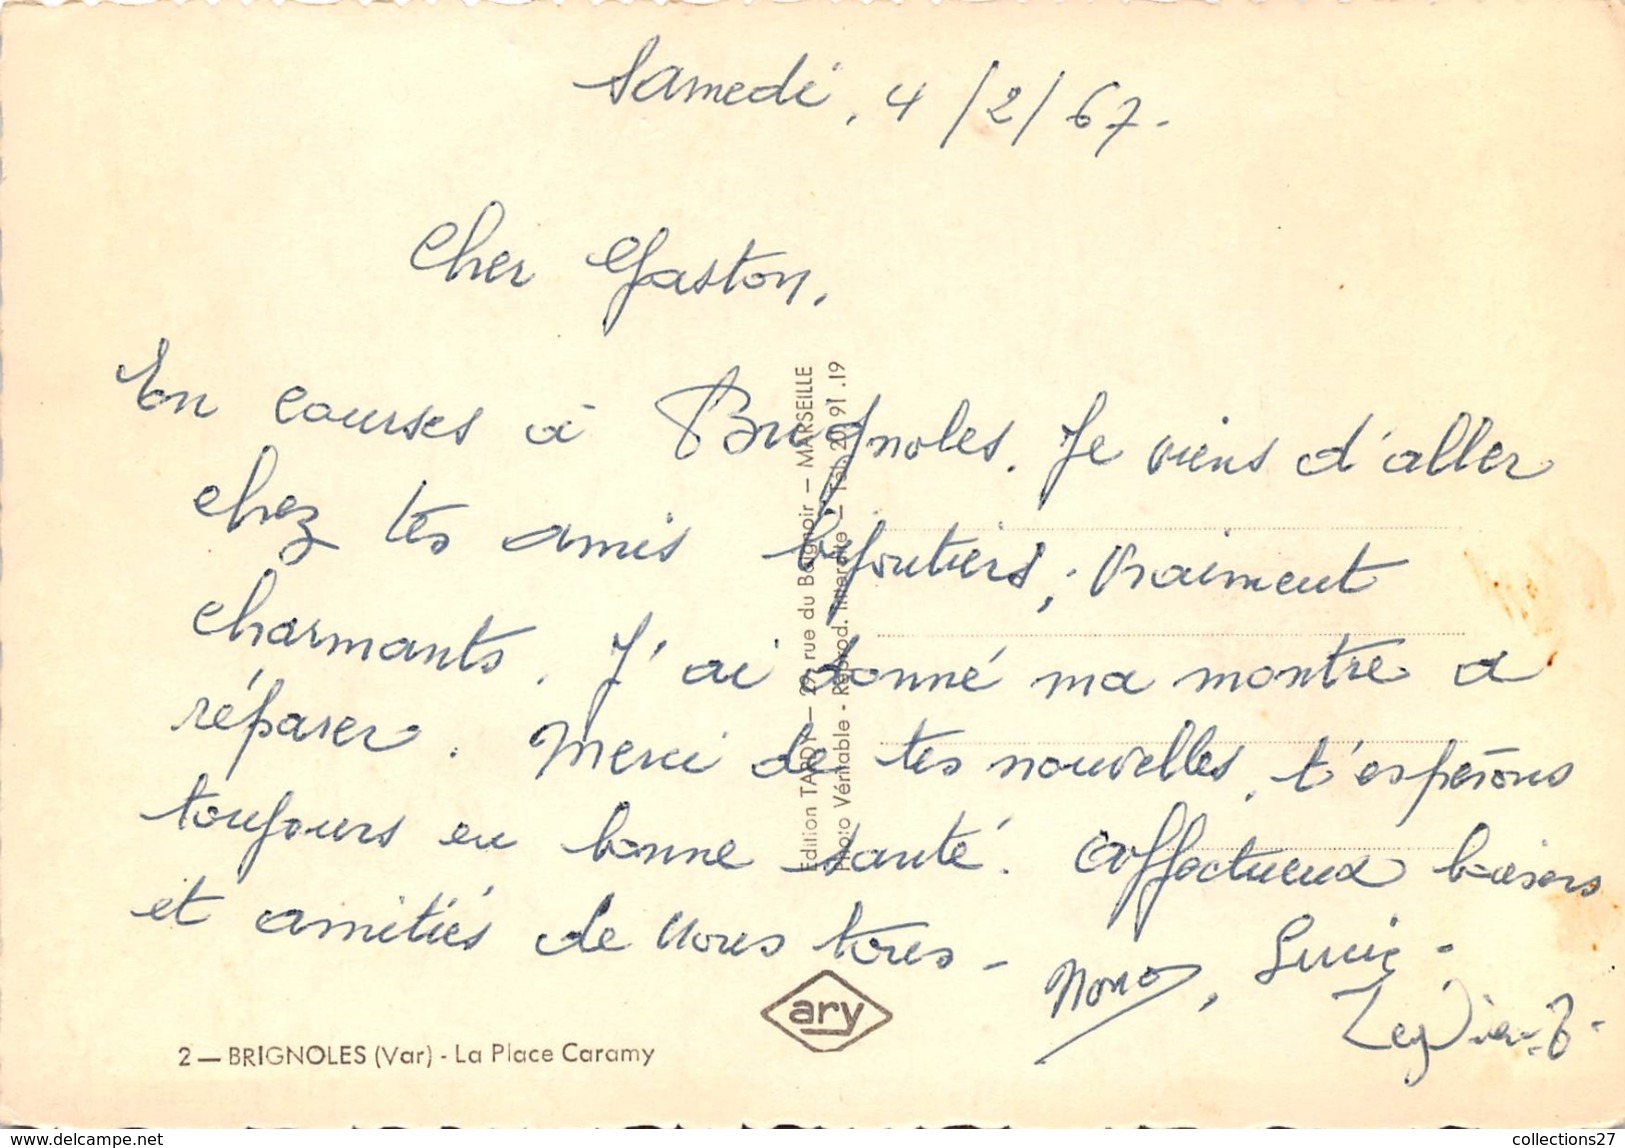 Samedi, 4/2/67.
Cher Gaston,
En courses à Brignoles. Je viens d'aller
chez tes amis bijoutiers, vraiment
charmants. J'ai donné ma montre a
réparer. Merci de tes nouvelles, t'espérons
toujours en bonne santé. Affectueux baisers
et amitiés de nous tous -
Nono, Lucie -
Edition TARDY — 29, rue du Baignoir — MARSEILLE
Photo Véritable - Reprod. Interdite — Tél. 20 91.19
ary
2 — BRIGNOLES (Var) - La Place Caramy
collections27